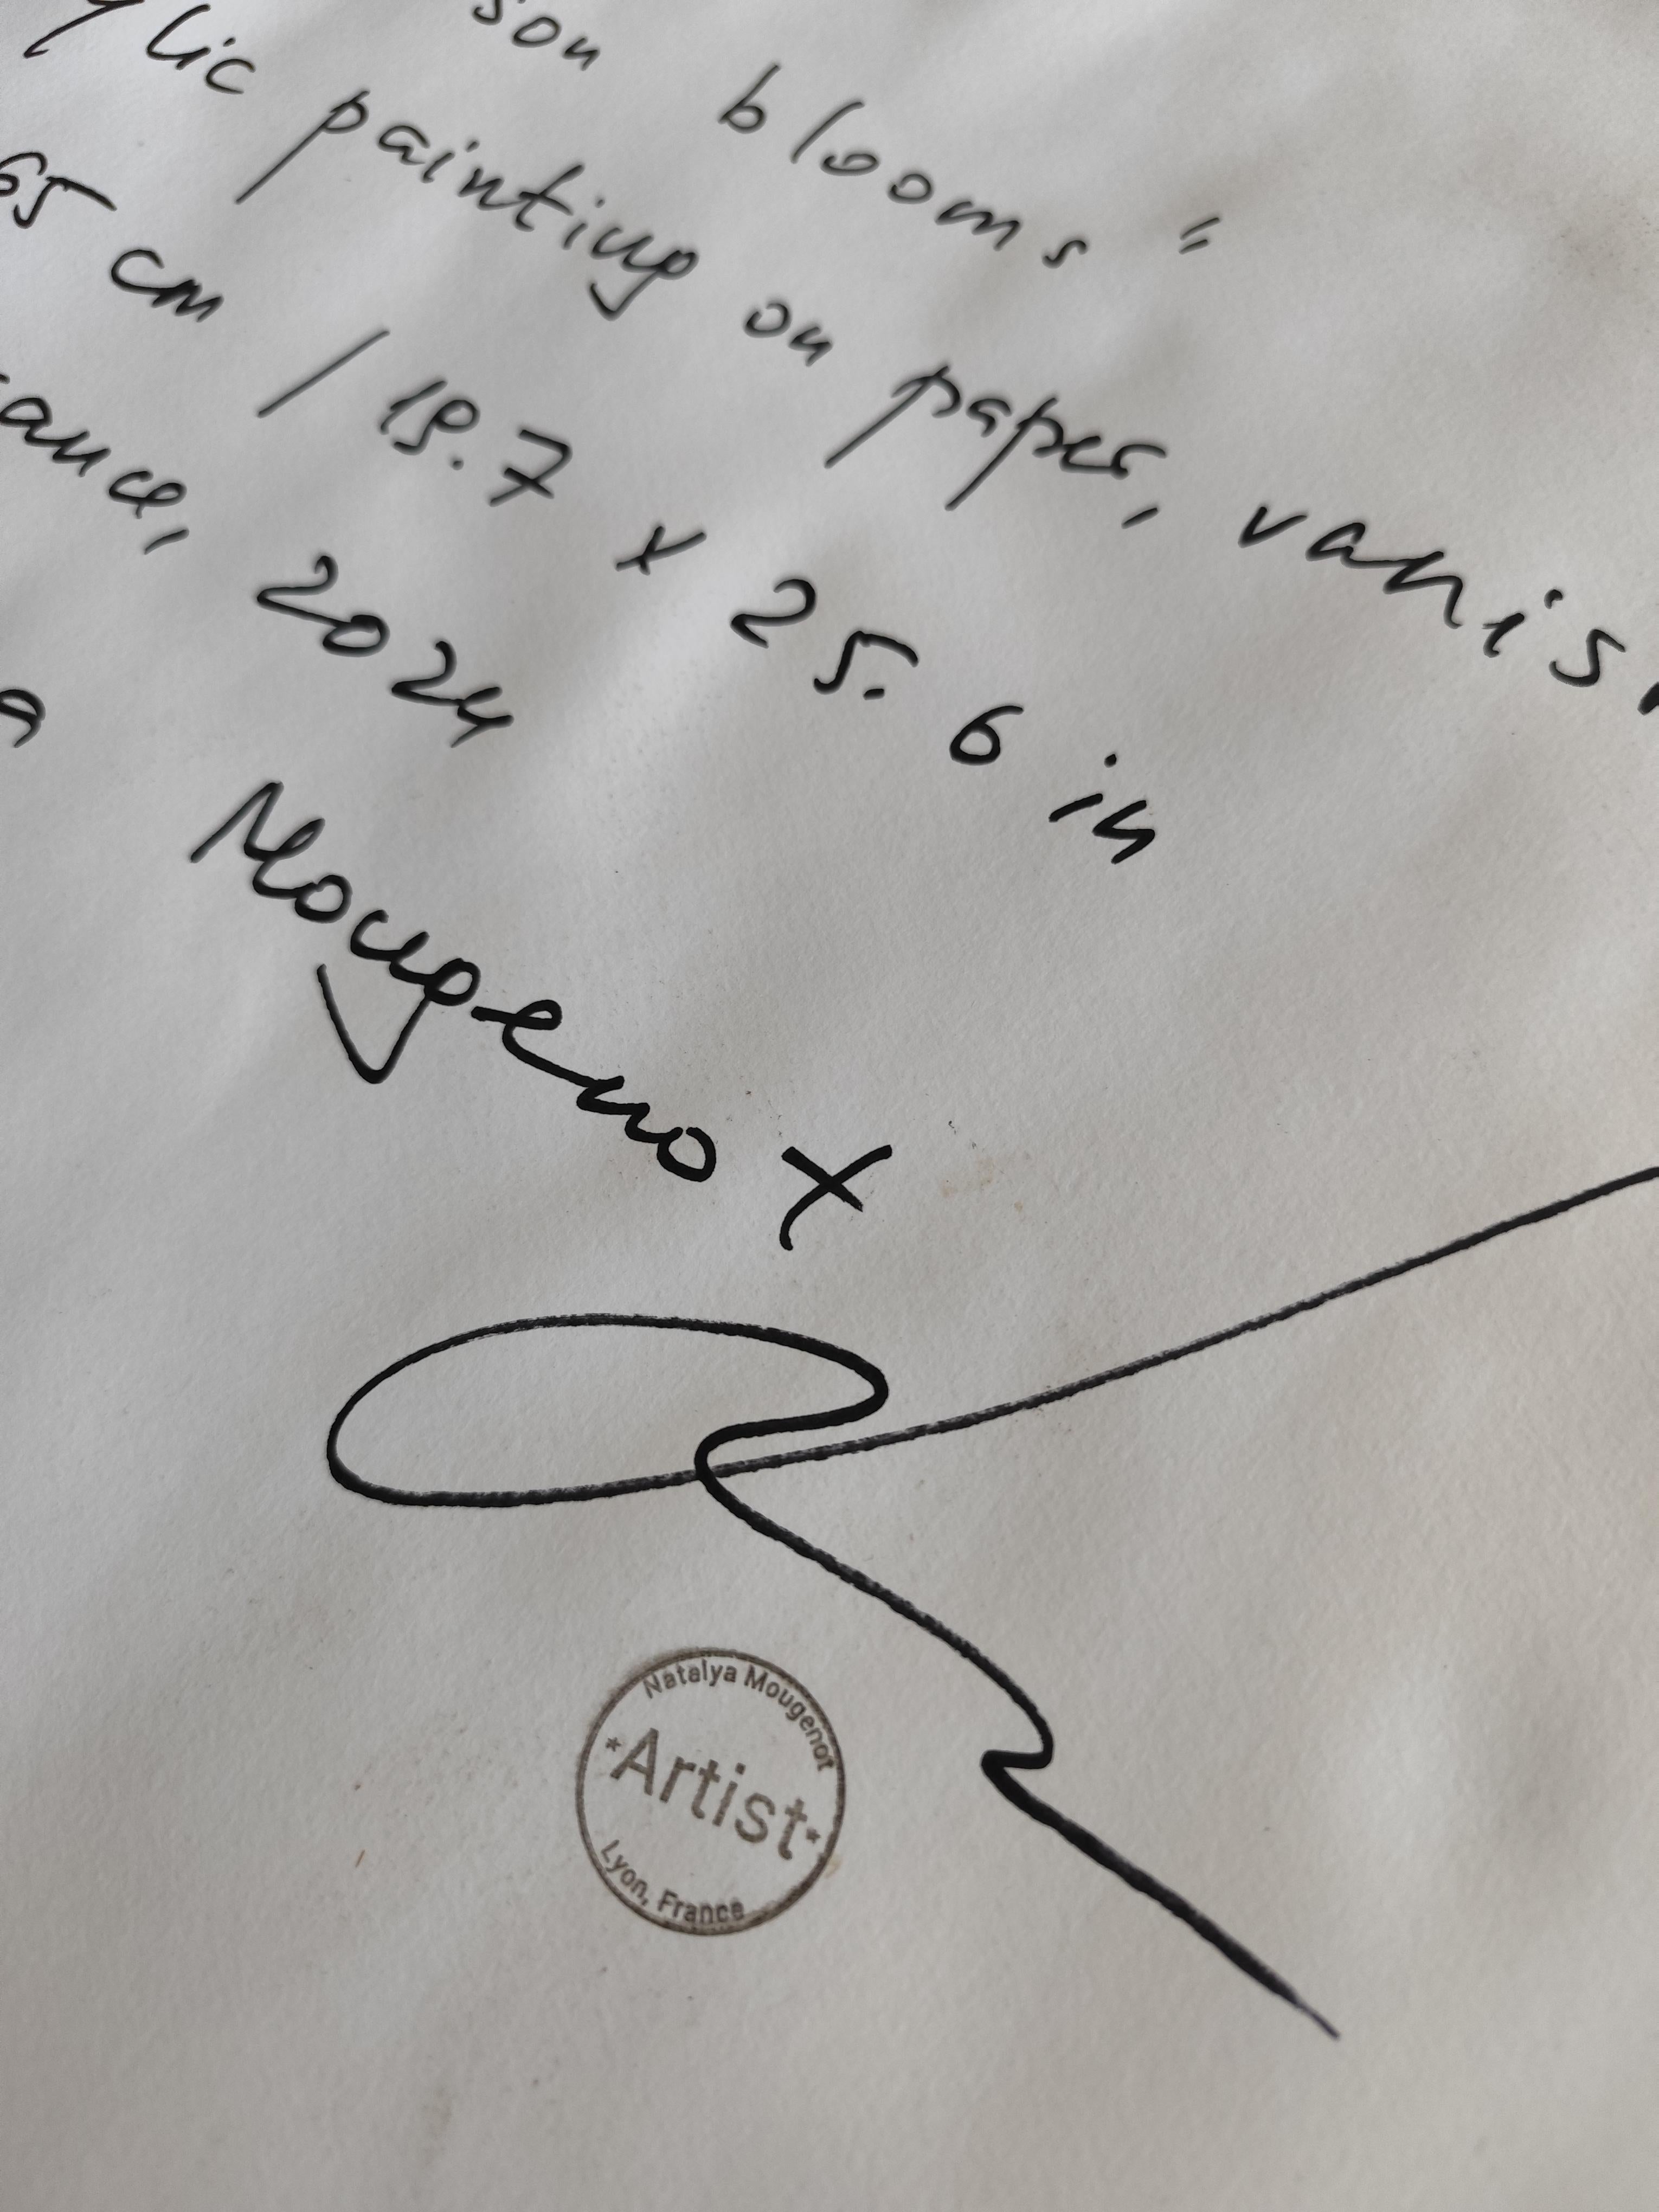 son blooms"
ylic painting on paper, vanis
65 cm / 19.7 x 25.6 in
ance, 2024
a Mougenot
Natalya Mougenot
*Artist*
Lyon, France